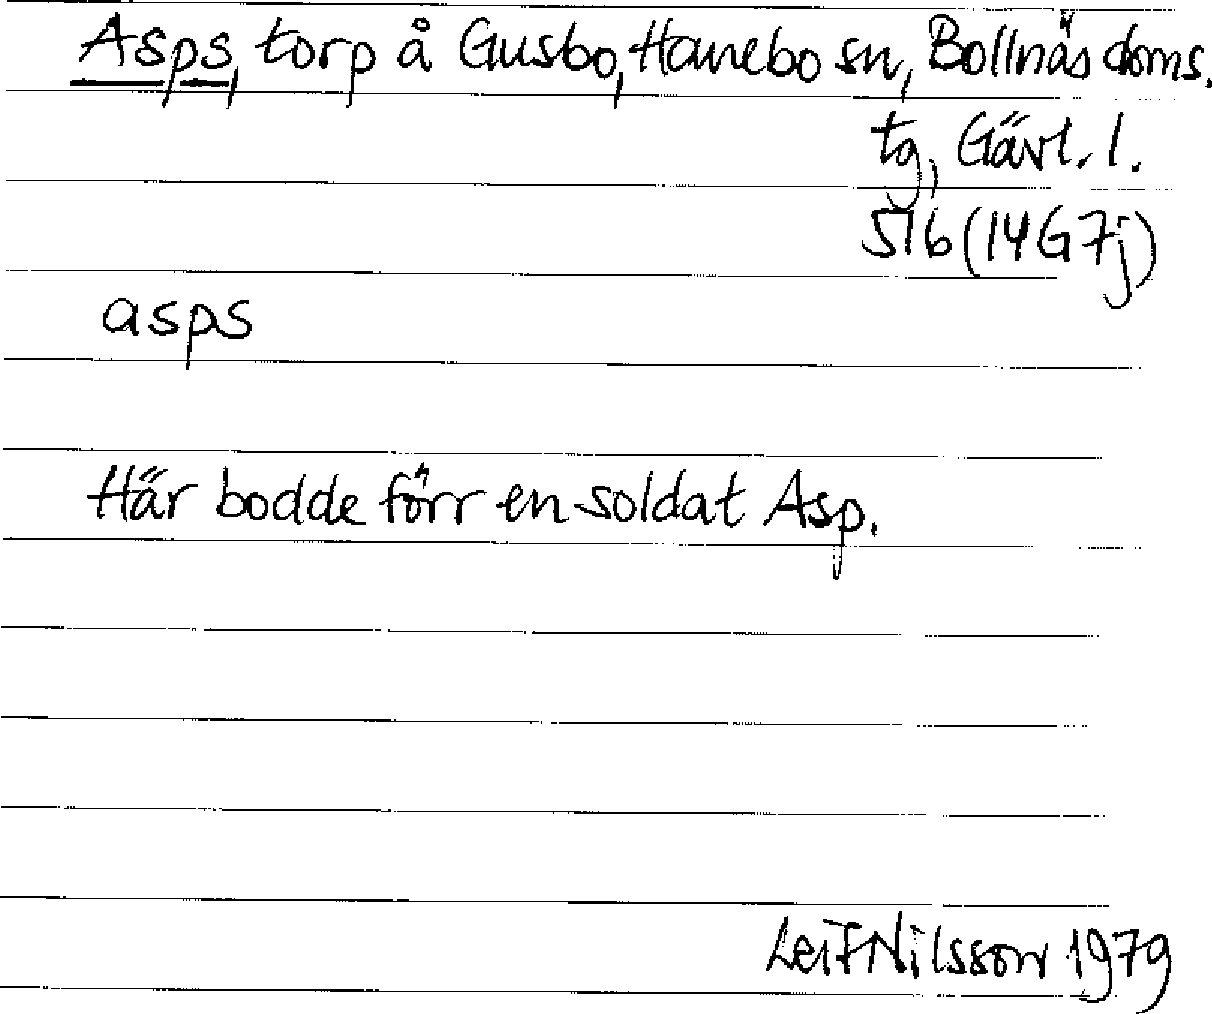 Asps, torp å Gusbo, Hanebo sn, Bollnäs doms.
tg, Gävl. l.
516 (14G7j)
asps
Här bodde förr en soldat Asp.
Leif Nilsson 1979